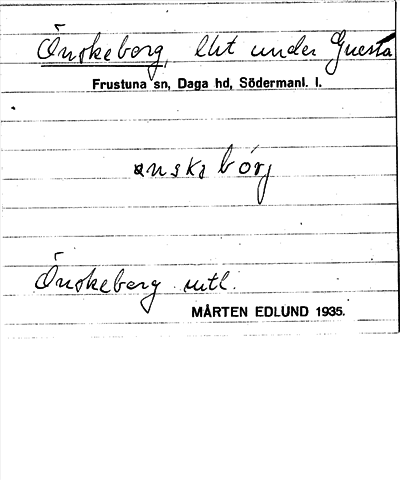 Önskeborg, lht under Gnesta
Frustuna sn, Daga hd, Södermanl. l.
ønska bórj
Önskeborg mtl.
MÅRTEN EDLUND 1935.